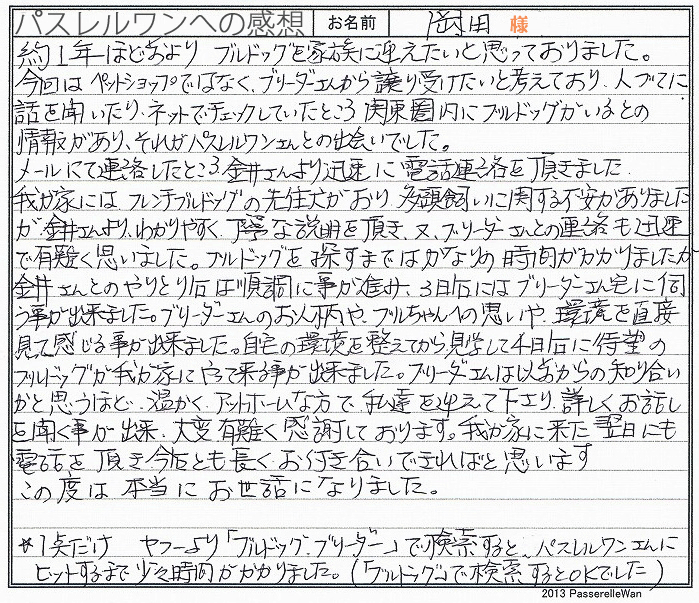 パスレルワンへの感想 お名前 岡田 様
約1年ほどまえより ブルドッグを家族に迎えたいと思っておりました。
今回はペットショップではなく、ブリーダーさんから譲り受けたいと考えており、人づてに
話を聞いたり、ネットでチェックしていたところ関東圏内にブルドッグがいるとの
情報があり、それがパスレルワンさんとの出会いでした。
メールにて連絡したところ金井さんより迅速に電話連絡を頂きました
我が家には、フレンチブルドッグの先住犬がおり、多頭飼いに関する不安がありました
が金井さんより、わかりやすく、丁寧な説明を頂き、又、ブリーダーさんとの連絡も迅速
で有難く思いました。ブルドッグを探すまではかなりの時間がかかりましたが
金井さんとのやりとり后は順調に事が進み、3日后にはブリーダーさん宅に伺
う事が出来ました。ブリーダーさんのお人柄や、ブルちゃんへの思いや、環境を直接
見て感じる事が出来ました。自宅の環境を整えてから、見学して4日后に待望の
ブルドッグが我が家にやって来る事が出来ました。ブリーダーさんは以前からの知り合い
かと思うほど、温かく、アットホームな方で、私達を迎えて下さり、詳しくお話し
を聞く事が出来、大変有難く感謝しております。我が家に来た翌日にも
電話を頂き、今后とも長くお付き合いできればと思います
この度は本当にお世話になりました。
*1点だけ ヤフーより「ブルドッグ、ブリーダー」で検索すると、パスレルワンさんに
ヒットするまで少々時間がかかりました。(「ブルドッグ」で検索するとOKでした)
2013 PasserelleWan